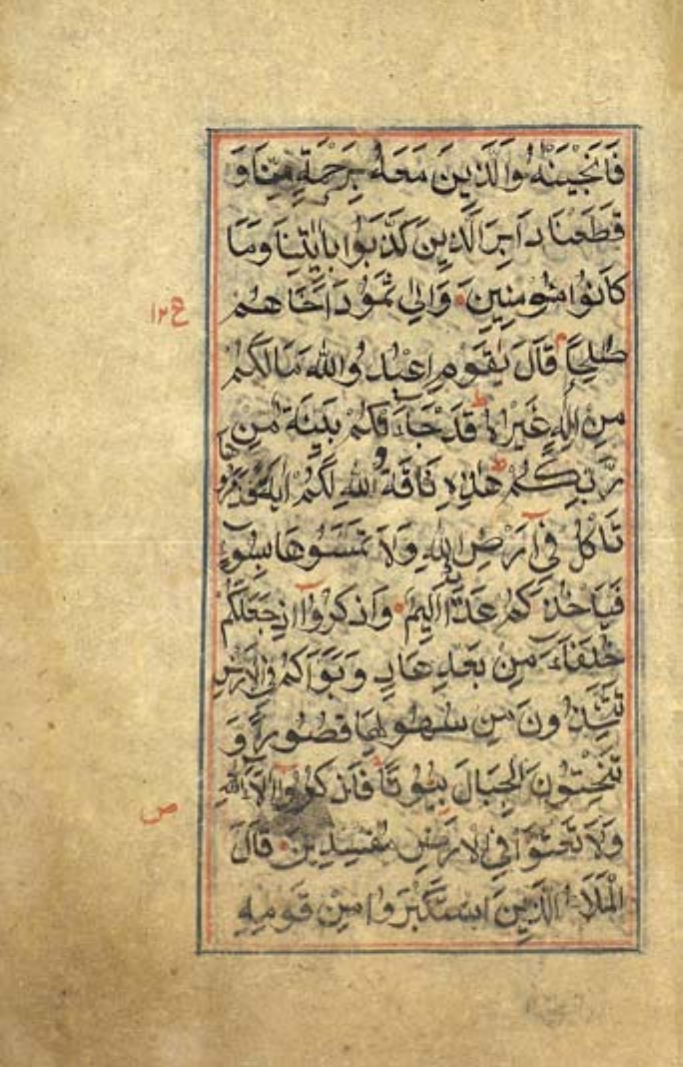 فَاَنْجَيْنٰهُ وَالَّذِيْنَ مَعَهُ بِرَحْمَةٍ مِّنَّا وَ
قَطَعْنَا دَابِرَ الَّذِيْنَ كَذَّبُوا بِاٰيٰتِنَا وَمَا
كَانُوْا مُؤْمِنِيْنَ وَاِلٰى ثَمُوْدَ اَخَاهُمْ
صٰلِحًا قَالَ يٰقَوْمِ اعْبُدُوا اللّٰهَ مَا لَكُمْ
مِنْ اِلٰهٍ غَيْرُهُ قَدْ جَاءَتْكُمْ بَيِّنَةٌ مِنْ
رَّبِّكُمْ هٰذِهِ نَاقَةُ اللّٰهِ لَكُمْ اٰيَةً فَذَرُوهَا
تَاْكُلْ فِيْ اَرْضِ اللّٰهِ وَلَا تَمَسُّوْهَا بِسُوْءٍ
فَيَاْخُذَكُمْ عَذَابٌ اَلِيْمٌ وَاذْكُرُوْا اِذْ جَعَلَكُمْ
خُلَفَاءَ مِنْ بَعْدِ عَادٍ وَبَوَّاَكُمْ فِي الْاَرْضِ
تَتَّخِذُوْنَ مِنْ سُهُوْلِهَا قُصُوْرًا وَ
تَنْحِتُوْنَ الْجِبَالَ بُيُوْتًا فَاذْكُرُوْا اٰلَاءَ اللّٰهِ
وَلَا تَعْثَوْا فِي الْاَرْضِ مُفْسِدِيْنَ قَالَ
الْمَلَاُ الَّذِيْنَ اسْتَكْبَرُوْا مِنْ قَوْمِهِ
ص